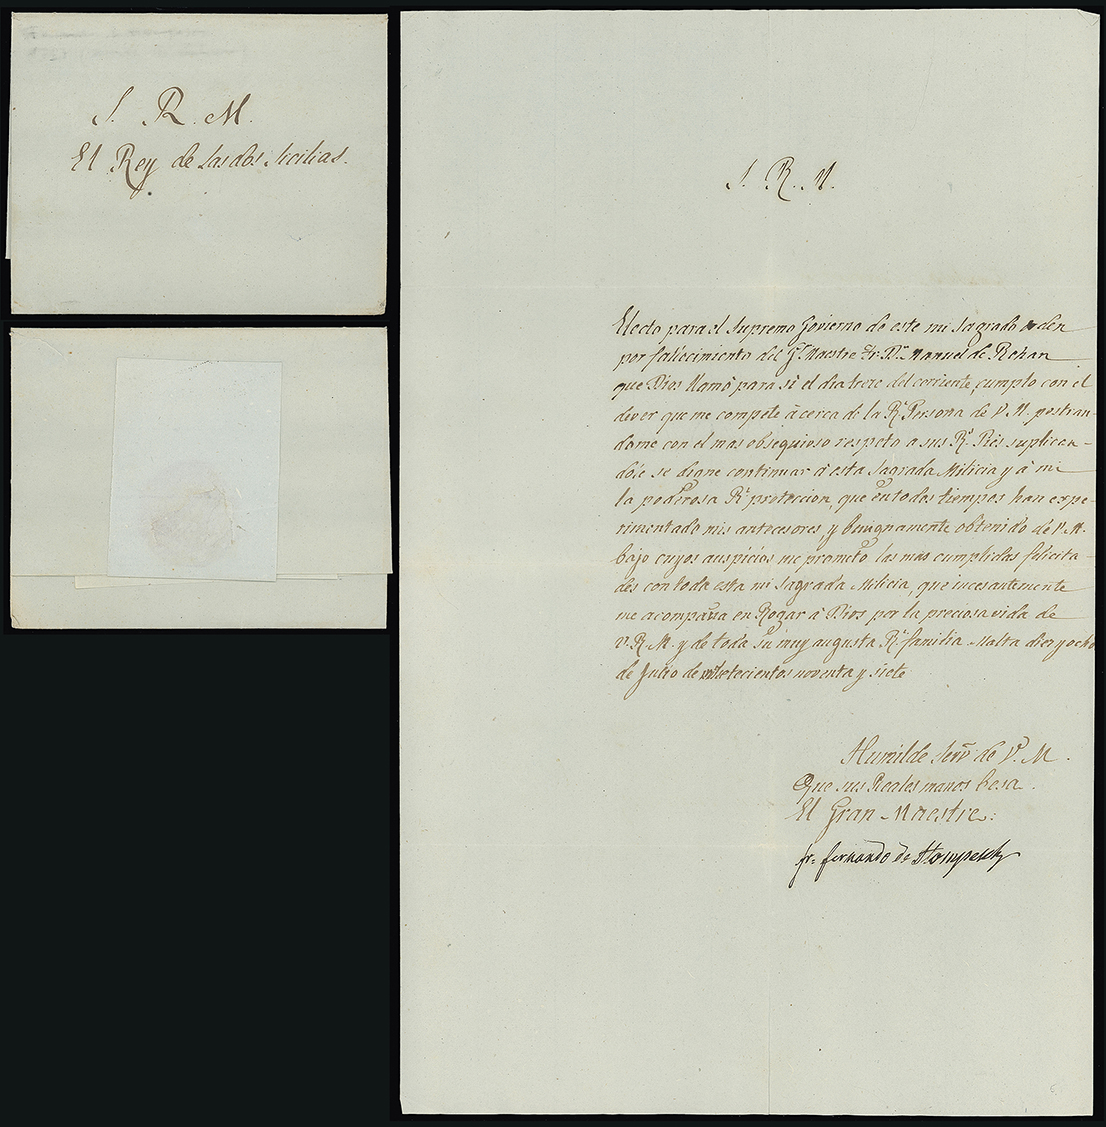 S. R. M.
El Rey de las dos Sicilias.
S. R. M.
Electo para el Supremo Govierno de este mi Sagrado orden
por fallecimiento del Gn Maestre Fr. Dn Manuel de Rohan
que Dios llamó para si el dia trece del corriente, cumplo con el
dever que me compete à cerca de la Rl Persona de V. M. postran-
dome con el mas obsequioso respeto a sus Rs Piés suplican-
dole se digne continuar à esta Sagrada Milicia y à mi
la poderosa Rl proteccion, que en todos tiempos han expe-
rimentado mis antecesores, y benignamente obtenido de V. M.
bajo cuyos auspicios me prometo las mas cumplidas felicida-
des con toda esta mi Sagrada Milicia, que incesantemente
me acompaña en Rogar à Dios por la preciosa vida de
V. R. M. y de toda su muy augusta Rl familia. Malta diez y ocho
de Julio de mil setecientos noventa y siete
Humilde Servr de V. M.
Que sus Reales manos besa.
El Gran Maestre.
fr. fernando de Hompesch